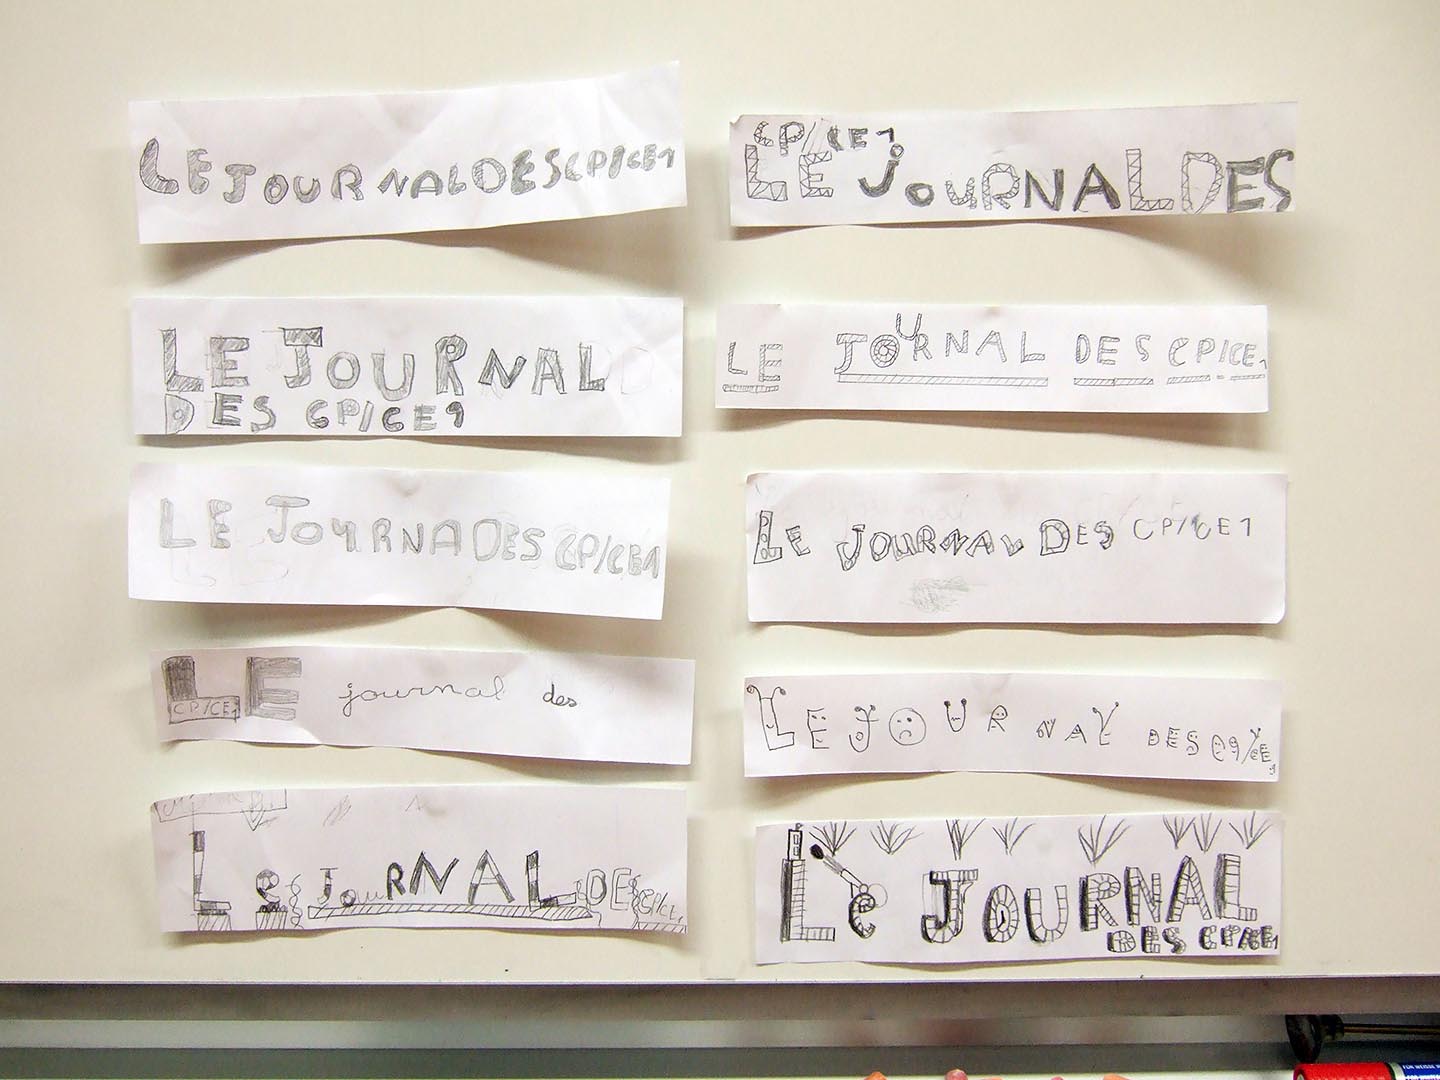 LE JOURNAL DES CP/CE1
LE JOURNAL
DES CP/CE1
LE JOURNA DES CP/CE1
LE journal des
CP/CE1
Le JouRNAL DES CP/CE1
CP/CE1
LE JouRNAL DES
LE JOURNAL DES CP/CE1
LE JOURNAL DES CP/CE1
LE JOUR NAL DES CP/CE1
Le JOURNAL
DES CP/CE1